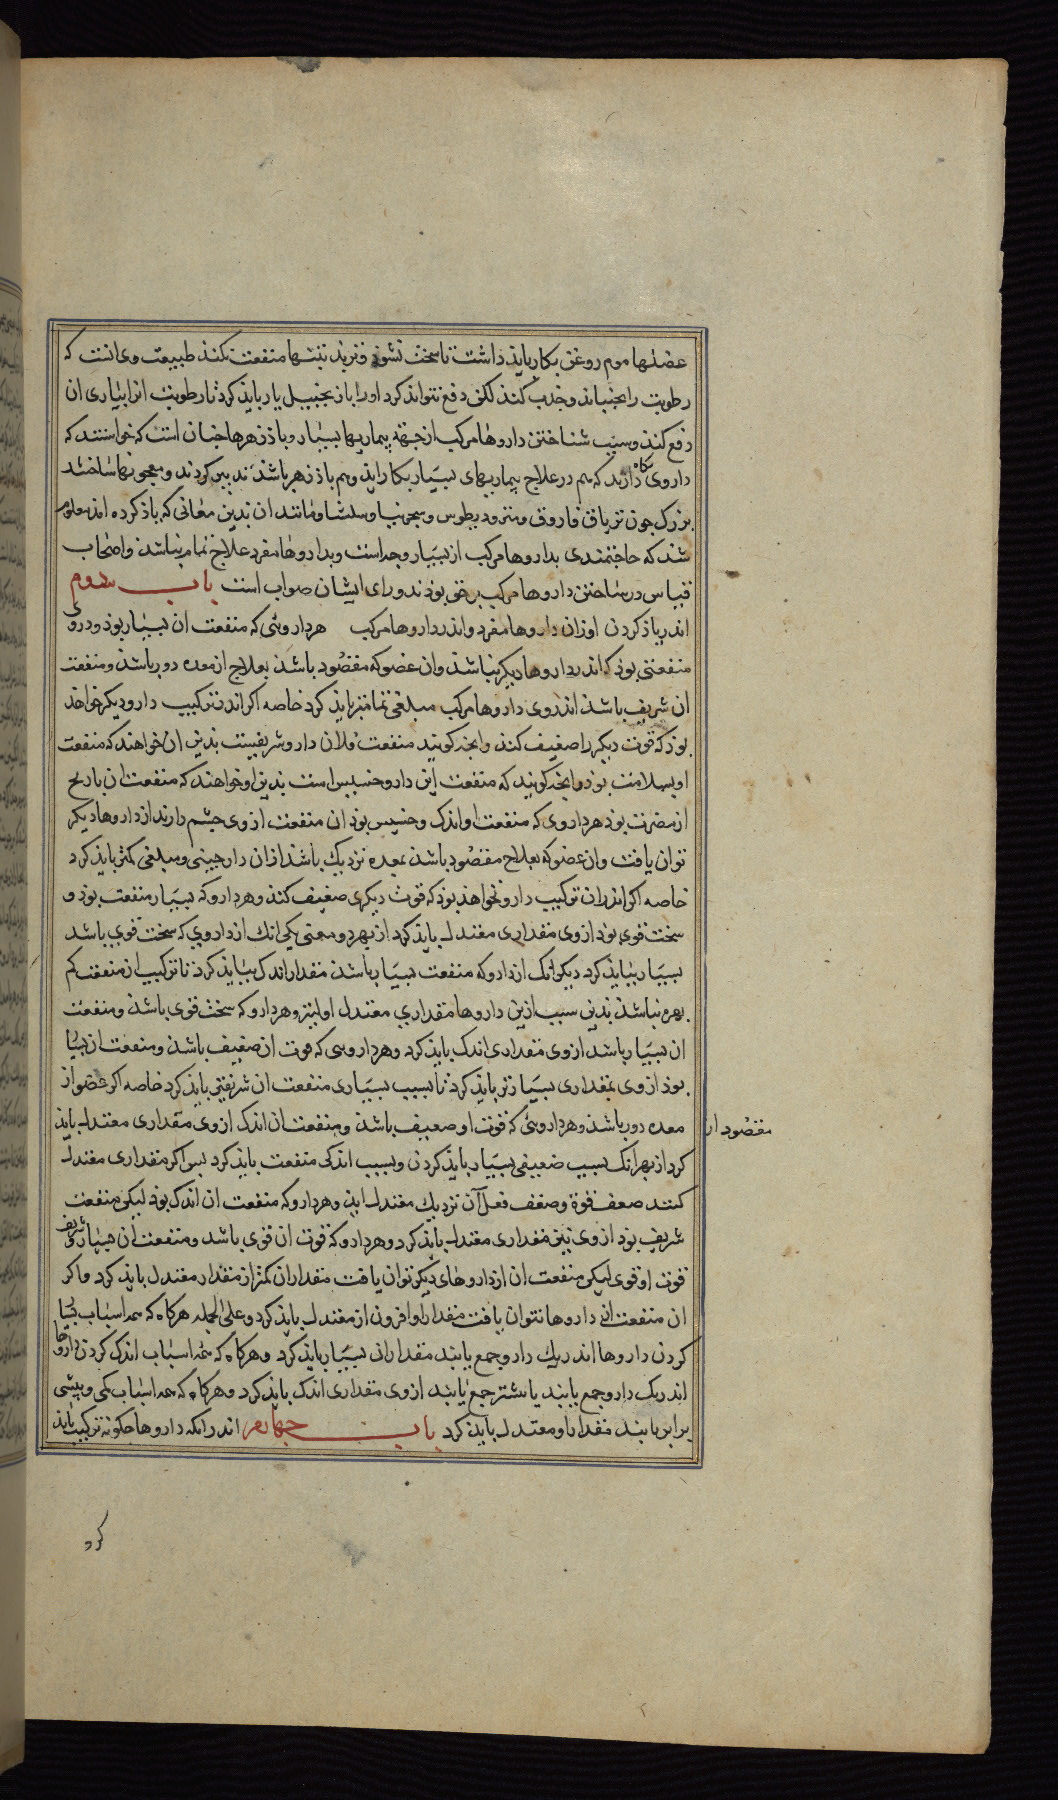 عضلها موم روغن بکار باید داشت تا سخت نشود و تربد تنها منفعت نکند طبیعت وی انست که
رطوبت را بجنباند و جذب کند لکن دفع نتواند کرد او را با زنجبیل یار باید کرد تا رطوبت انرا بیاری ان
دفع کند و سبب شناختن داروها مرکب از جهة بیماریها بسیار و باذ زهرها جنان است که خواستند که
داروی نکاه دارند که هم در علاج بیماریهای بسیار بکار اید و هم باذ زهر باشد تدبیر کردند و معجونها ساختند
بزرک جون تریاق فاروق و مثرودیطوس و سجزنیا و شلیثا و مانند ان بدین معانی که یاذ کرده امد معلوم
شد که حاجتمندی بداروها مرکب از بسیار وجه است و بداروها مفرد علاج تمام نباشد و اصحاب
قیاس در ساختن داروها مرکب بر حق بوذند و رای ایشان صواب است باب سوم
اندر یاذ کردن اوزان داروها مفرد و اندر داروها مرکب هر داروئی که منفعت ان بسیار بوذ و در وی
منفعتی بوذ که اندر داروها دیکر نباشد و ان عضو که مقصود باشد بعلاج از معده دور باشد و منفعت
ان شریف باشد اندر وی داروها مرکب مبلغی تمامتر باید کرد خاصه اکر اندر ترکیب دارو دیکر خواهذ
بوذ که قوت دیکر را ضعیف کند و انجه کویند منفعت فلان دارو شریفست بدین ان خواهند که منفعت
او بسلامت بوذ و انجه کویند که منفعت این دارو خسیس است بدین او خواهند که منفعت ان با رنج
از مضرت بوذ هر داروی که منفعت او اندک و خسیس بوذ ان منفعت از وی جشم دارند از داروها دیکر
توان یافت و ان عضو که بعلاج مقصود باشد بمعده نزدیک باشد از ان دار جینی و مبلغی کمتر باید کرد
خاصه اکر اندر ان ترکیب دارو نخواهد بوذ که قوت دیکری ضعیف کند و هر دارو که بسیار منفعت بوذ و
سخت قوی بوذ از وی مقداری معتدل باید کرد از بهر دو معنی یکی انک از داروی که سخت قوی باشد
بسیار نباید کرد دیکر انک از دارو که منفعت بسیار باشد مقدار اندک نباید کرد تا ترکیب از منفعت کم
بهره نباشد بدین سبب ازین داروها مقداری معتدل اولیتر و هر دارو که سخت قوی باشد و منفعت
ان بسیار باشد از وی مقداری اندک باید کرد و هر داروی که قوت ان ضعیف باشد و منفعت ان بسیار
بوذ از وی بمقداری بسیارتر باید کرد تا بسبب بسیاری منفعت ان شریفتر باید کرد خاصه اکر عضو از
معده دور باشد و هر داروئی که قوت او ضعیف باشد و منفعت ان اندک از وی مقداری معتدل باید
مقصود از
کرد از بهر انک بسبب ضعیفی بسیار باید کردن و بسبب اندکی منفعت باید کرد بس اکر مقداری معتدل
کنند ضعف قوة و ضعف فعل آن نزدیک معتدل اید و هر دارو که منفعت ان اندک بوذ لیکن منفعت
شریف بوذ از وی نیز مقداری معتدل باید کرد و هر دارو که قوت ان قوی باشد و منفعت ان بسیار و شریف
قوت او قوی لیکن منفعت ان از داروهای دیکر توان یافت مقدار ان کمتر از مقدار معتدل باید کرد و اکر
ان منفعت از داروها نتوان یافت مقدار او افزون از معتدل باید کرد و علی الجمله هرکاه که همه اسباب بسیار
کردن داروها اندر یک دارو جمع یابند مقدار انی بسیار باید کرد و هرکاه که همه اسباب اندک کردن داروها
اندر یک دارو جمع یابند یا بیشتر جمع یابند از وی مقداری اندک باید کرد و هرکاه که همه اسباب کمی و بیشی
برابر یابند مقدار او معتدل باید کرد باب جهارم اندر انکه داروها جکونه ترکیب باید
کرد